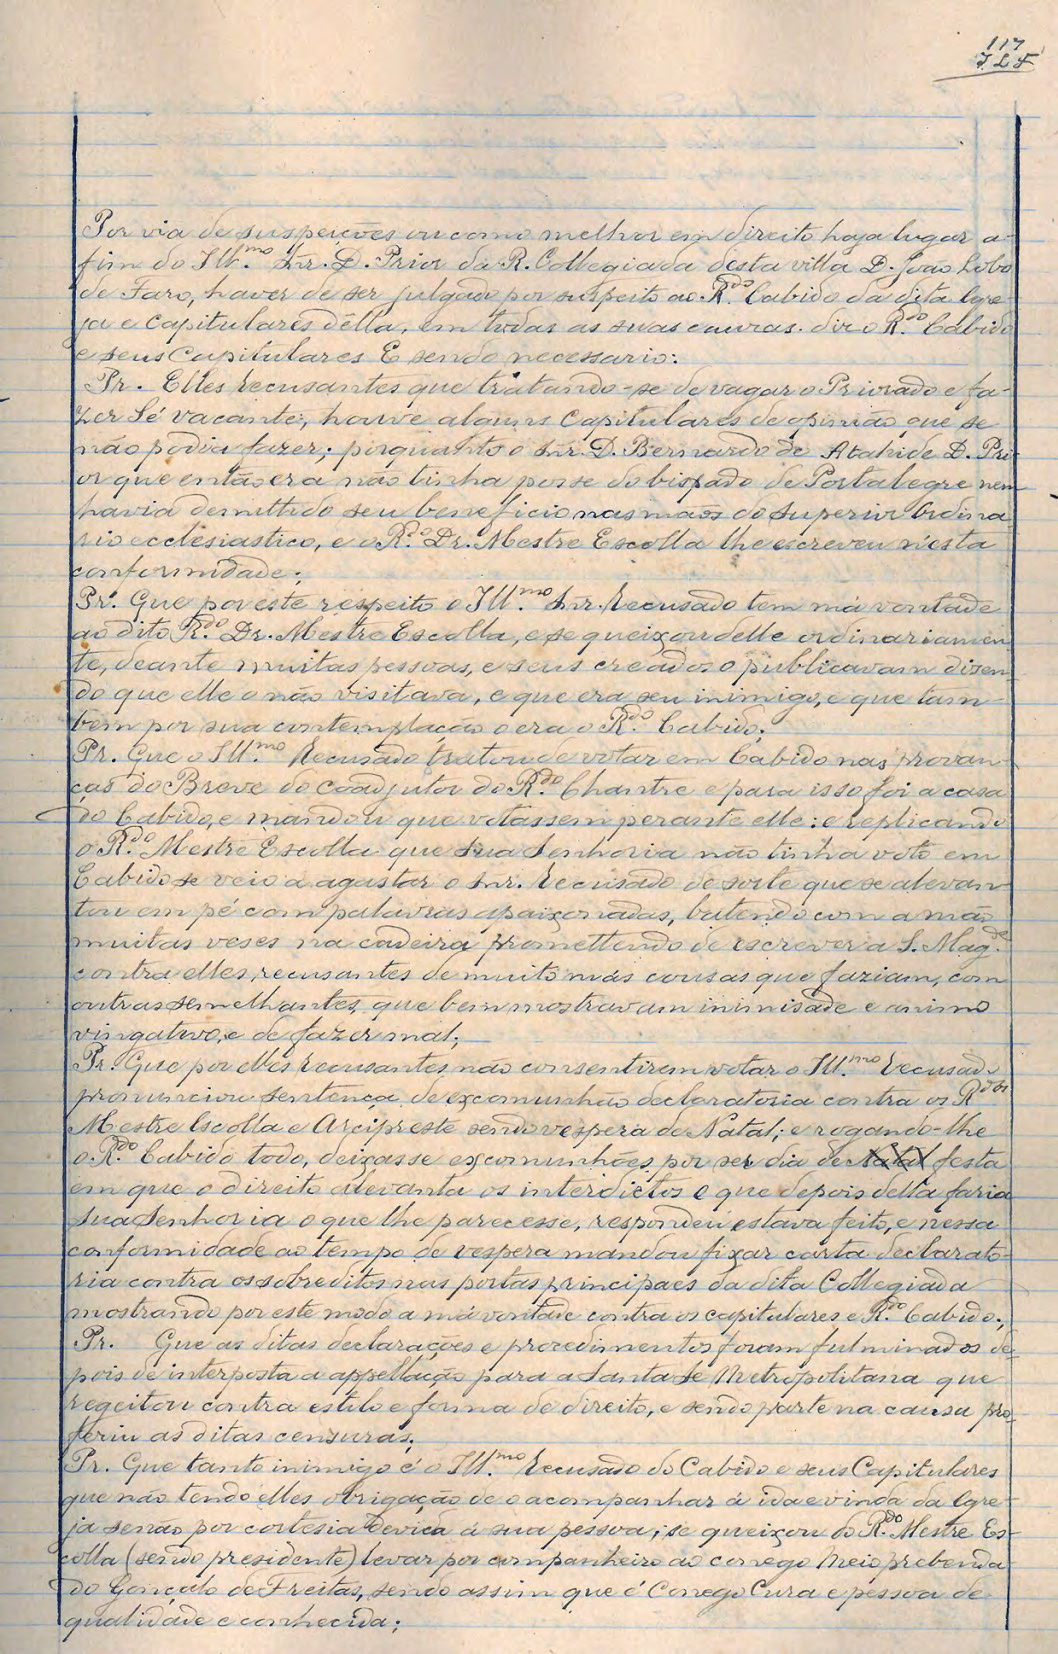 117
Por via de suspeições ou como melhor em direito haja lugar a-
fim do Ill.mo Snr. D. Prior da R. Collegiada desta villa D. João Lobo
de Faro, haver de ser julgado por suspeito ao R.do Cabido da dita Igre-
ja e Capitulares della, em todas as suas causas. diz o R.do Cabido
e seus Capitulares E sendo necessario:
Pr. Elles recusantes que tratando-se de vagar o Priorado e fa-
zer Sé vacante, houve alguns Capitulares de opinião que se
não podia fazer; porquanto o Snr. D. Bernardo de Atahide D. Pri-
or que então era não tinha posse do bispado de Portalegre nem
havia demittido seu beneficio nas mãos do superior Ordina-
rio ecclesiastico, e o R.do Dr. Mestre Escolla lhe escreveu n'esta
conformidade;
Pr. Que por este respeito o Ill.mo Snr. Recusado tem má vontade
ao dito R.do Dr. Mestre Escolla, e se queixou delle ordinariamen-
te, deante muitas pessoas, e seus creados o publicavam dizen-
do que elle o não visitava, e que era seu inimigo, e que tam-
bem por sua contemplação o era o R.do Cabido;
Pr. Que o Ill.mo Recusado tratou de votar em Cabido nas provan-
ças do Breve do Coadjutor do R.do Chantre e para isso foi a casa
do Cabido, e mandou que votassem perante elle: e replicando
o R.do Mestre Escolla que Sua Senhoria não tinha voto em
Cabido se veio a agastar o Snr. Recusado de sorte que se alevan-
tou em pé com palavras apaixonadas, batendo com a mão
muitas veses na cadeira promettendo de escrever a S. Mag.de
contra elles, recusantes de muito más cousas que faziam, com
outras semelhantes, que bem mostravam inimisade e animo
vingativo, e de fazer mal;
Pr. Que por elles recusantes não consentirem votar o Ill.mo Recusado
pronunciou sentença de excomunhão declaratoria contra os R.dos
Mestre Escolla e Arcipreste sendo vespera de Natal; e rogando-lhe
o R.do Cabido todo, deixasse excomunhões por ser dia de Natal festa
em que o direito alevanta os interdictos e que depois della faria
Sua Senhoria o que lhe parecesse, respondeu estava feito, e nessa
conformidade ao tempo de vespera mandou fixar carta declarato-
ria contra os sobreditos nas portas principaes da dita Collegiada
mostrando por este modo a má vontade contra os capitulares e R.do Cabido;
Pr. Que as ditas declarações e procedimentos foram fulminados de-
pois de interposta a appellação para a Santa Sé Metropolitana que
regeitou contra estilo e forma de direito, e sendo parte na causa pro-
feriu as ditas censuras;
Pr. Que tanto inimigo é o Ill.mo Recusado do Cabido e seus Capitulares
que não tendo elles obrigação de o acompanhar á ida e vinda da Igre-
ja senão por cortesia devida á sua pessoa; se queixou do R.do Mestre Es-
colla (sendo presidente) levar por companheiro ao conego Meio prebenda-
do Gonçalo de Freitas, sendo assim que é Conego Cura e pessoa de
qualidade e conhecida;